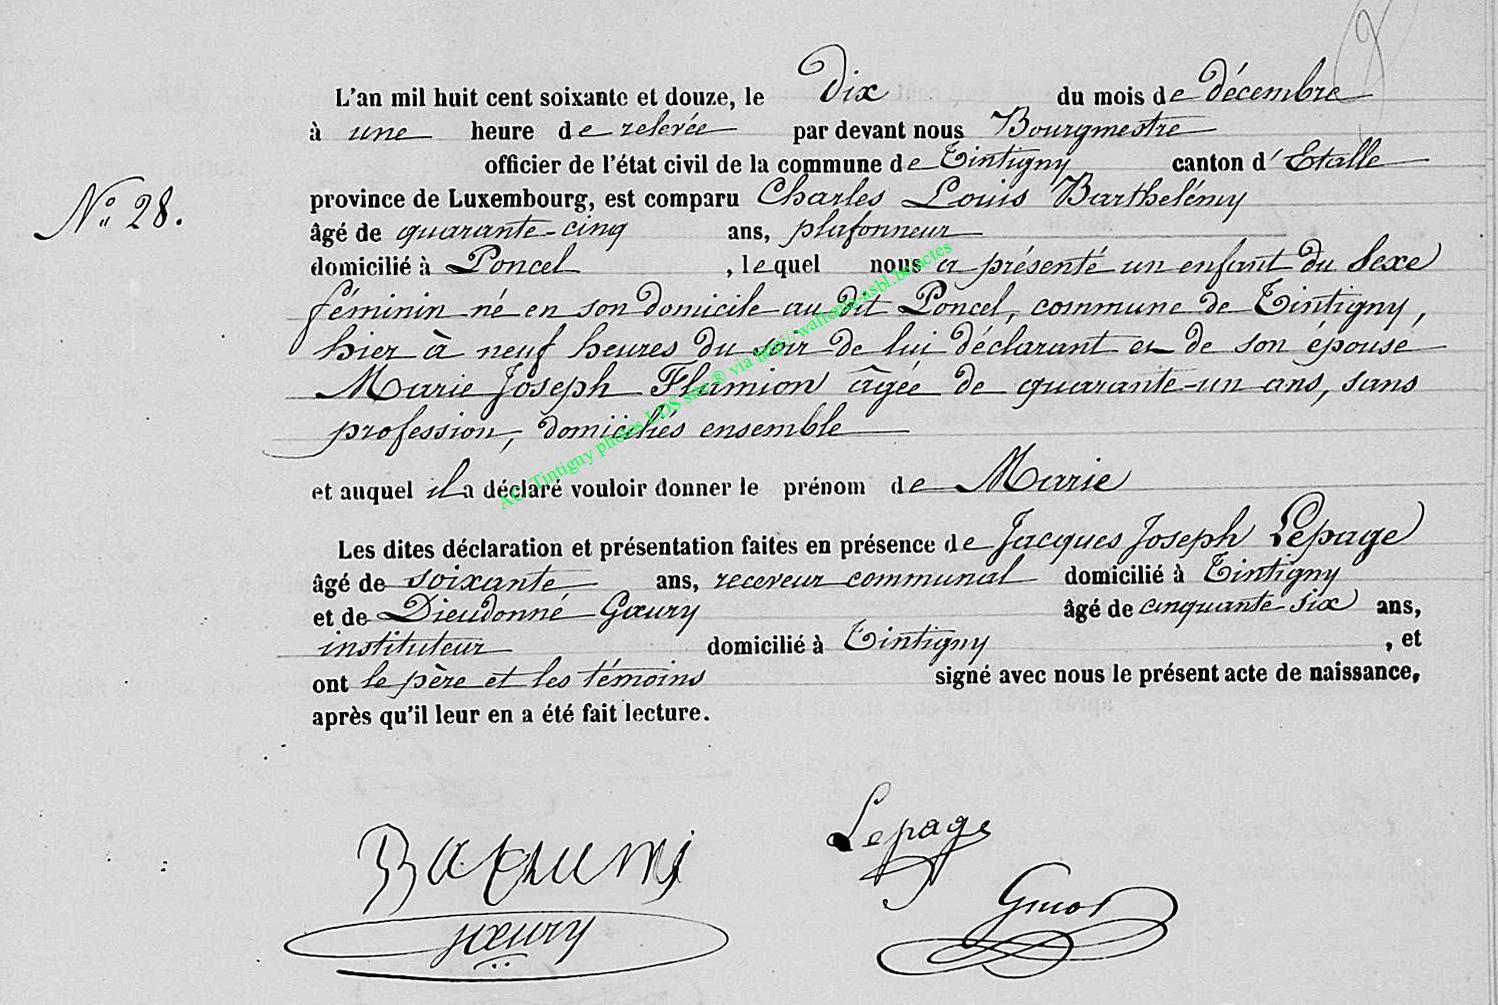 L'an mil huit cent soixante et douze, le dix du mois de décembre
à une heure de relevée par devant nous Bourgmestre
officier de l'état civil de la commune de Tintigny canton d'Etalle
N° 28.
province de Luxembourg, est comparu Charles Louis Barthelémy
âgé de quarante-cinq ans, plafonneur
domicilié à Poncel, lequel nous a présenté un enfant du sexe
féminin né en son domicile au dit Poncel, commune de Tintigny,
hier à neuf heures du soir de lui déclarant et de son épouse
Marie Joseph Flamion âgée de quarante-un ans, sans
profession, domiciliés ensemble
et auquel il a déclaré vouloir donner le prénom de Marie
Les dites déclaration et présentation faites en présence de Jacques Joseph Lepage
âgé de soixante ans, receveur communal domicilié à Tintigny
et de Dieudonné Gœury âgé de cinquante-six ans,
instituteur domicilié à Tintigny, et
ont le père et les témoins signé avec nous le présent acte de naissance,
après qu'il leur en a été fait lecture.
Lepage
Gœury